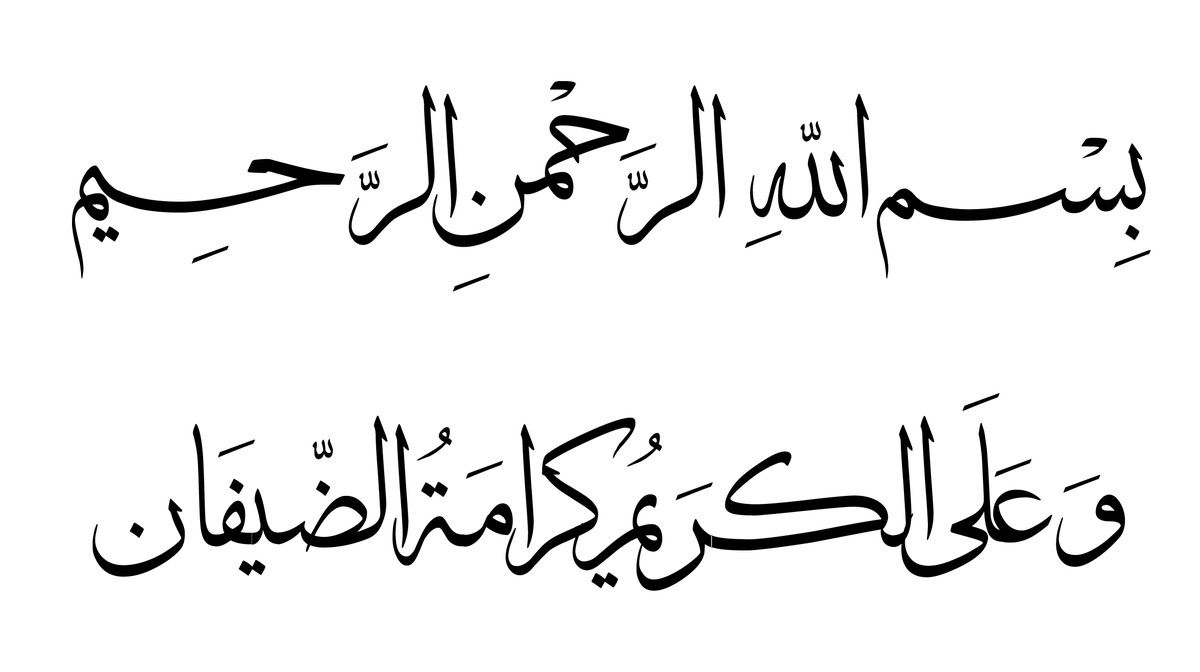 بِسْمِ اللّٰهِ الرَّحْمنِ الرَّحِيم
وَ عَلَى الكَرَيمُ كرامَةُ الضّيفَان